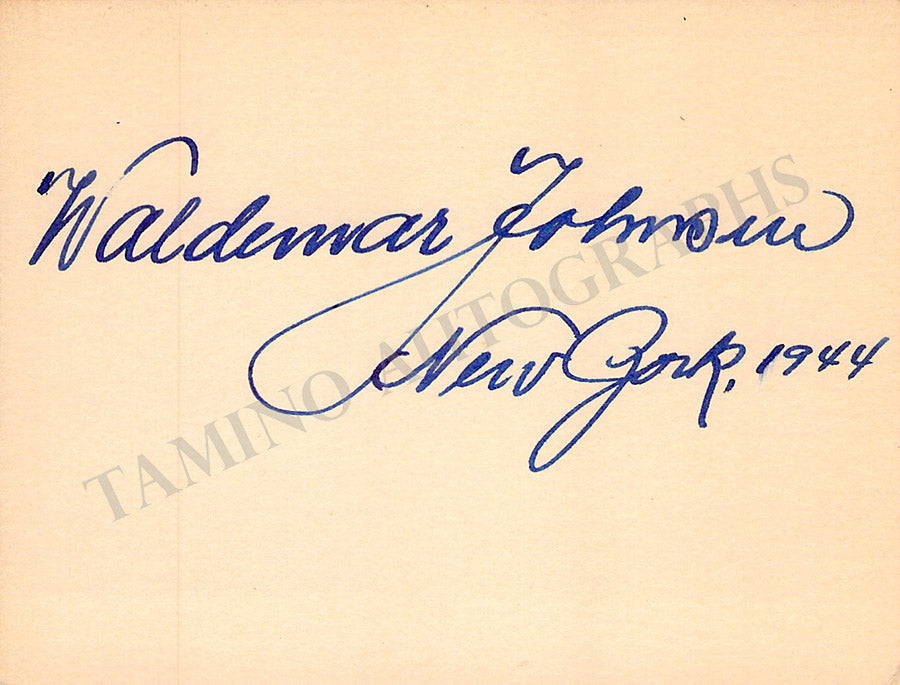 Waldemar Johnsen
New York, 1944
TAMINO AUTOGRAPHS